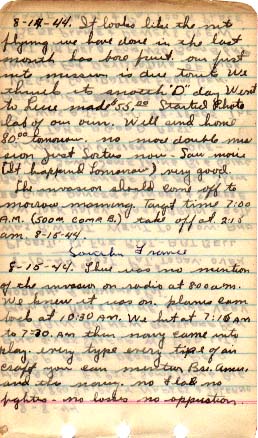 8-14-44. It looks like the nite
flying we have done in the last
month has bore fruit. our first
nite mission is due tonite We
think its another "D" day Went
to made $55.00 Started Photo
lab of our own. Will send home
80.00 tomorrow no more double mis
sion just Sorties now. Saw movie
(It happend Tomorrow) very good.
The invasion should come off to
morrow morning. Target time 7:00
A.M. (500# COMP B.) take off at 2:15
am. 8-15-44
Southern France
8-15-44. There was no mention
of the invasion on radio at 800 am.
We knew it was on. planes came
back at 10:30 AM. We hit at 7:10 AM
to 7:30 AM then navy came into
play. every type every type of air
craft you can mention Bri. Amer.
and the navy. no flak no
fighters - no losses no oppostion.